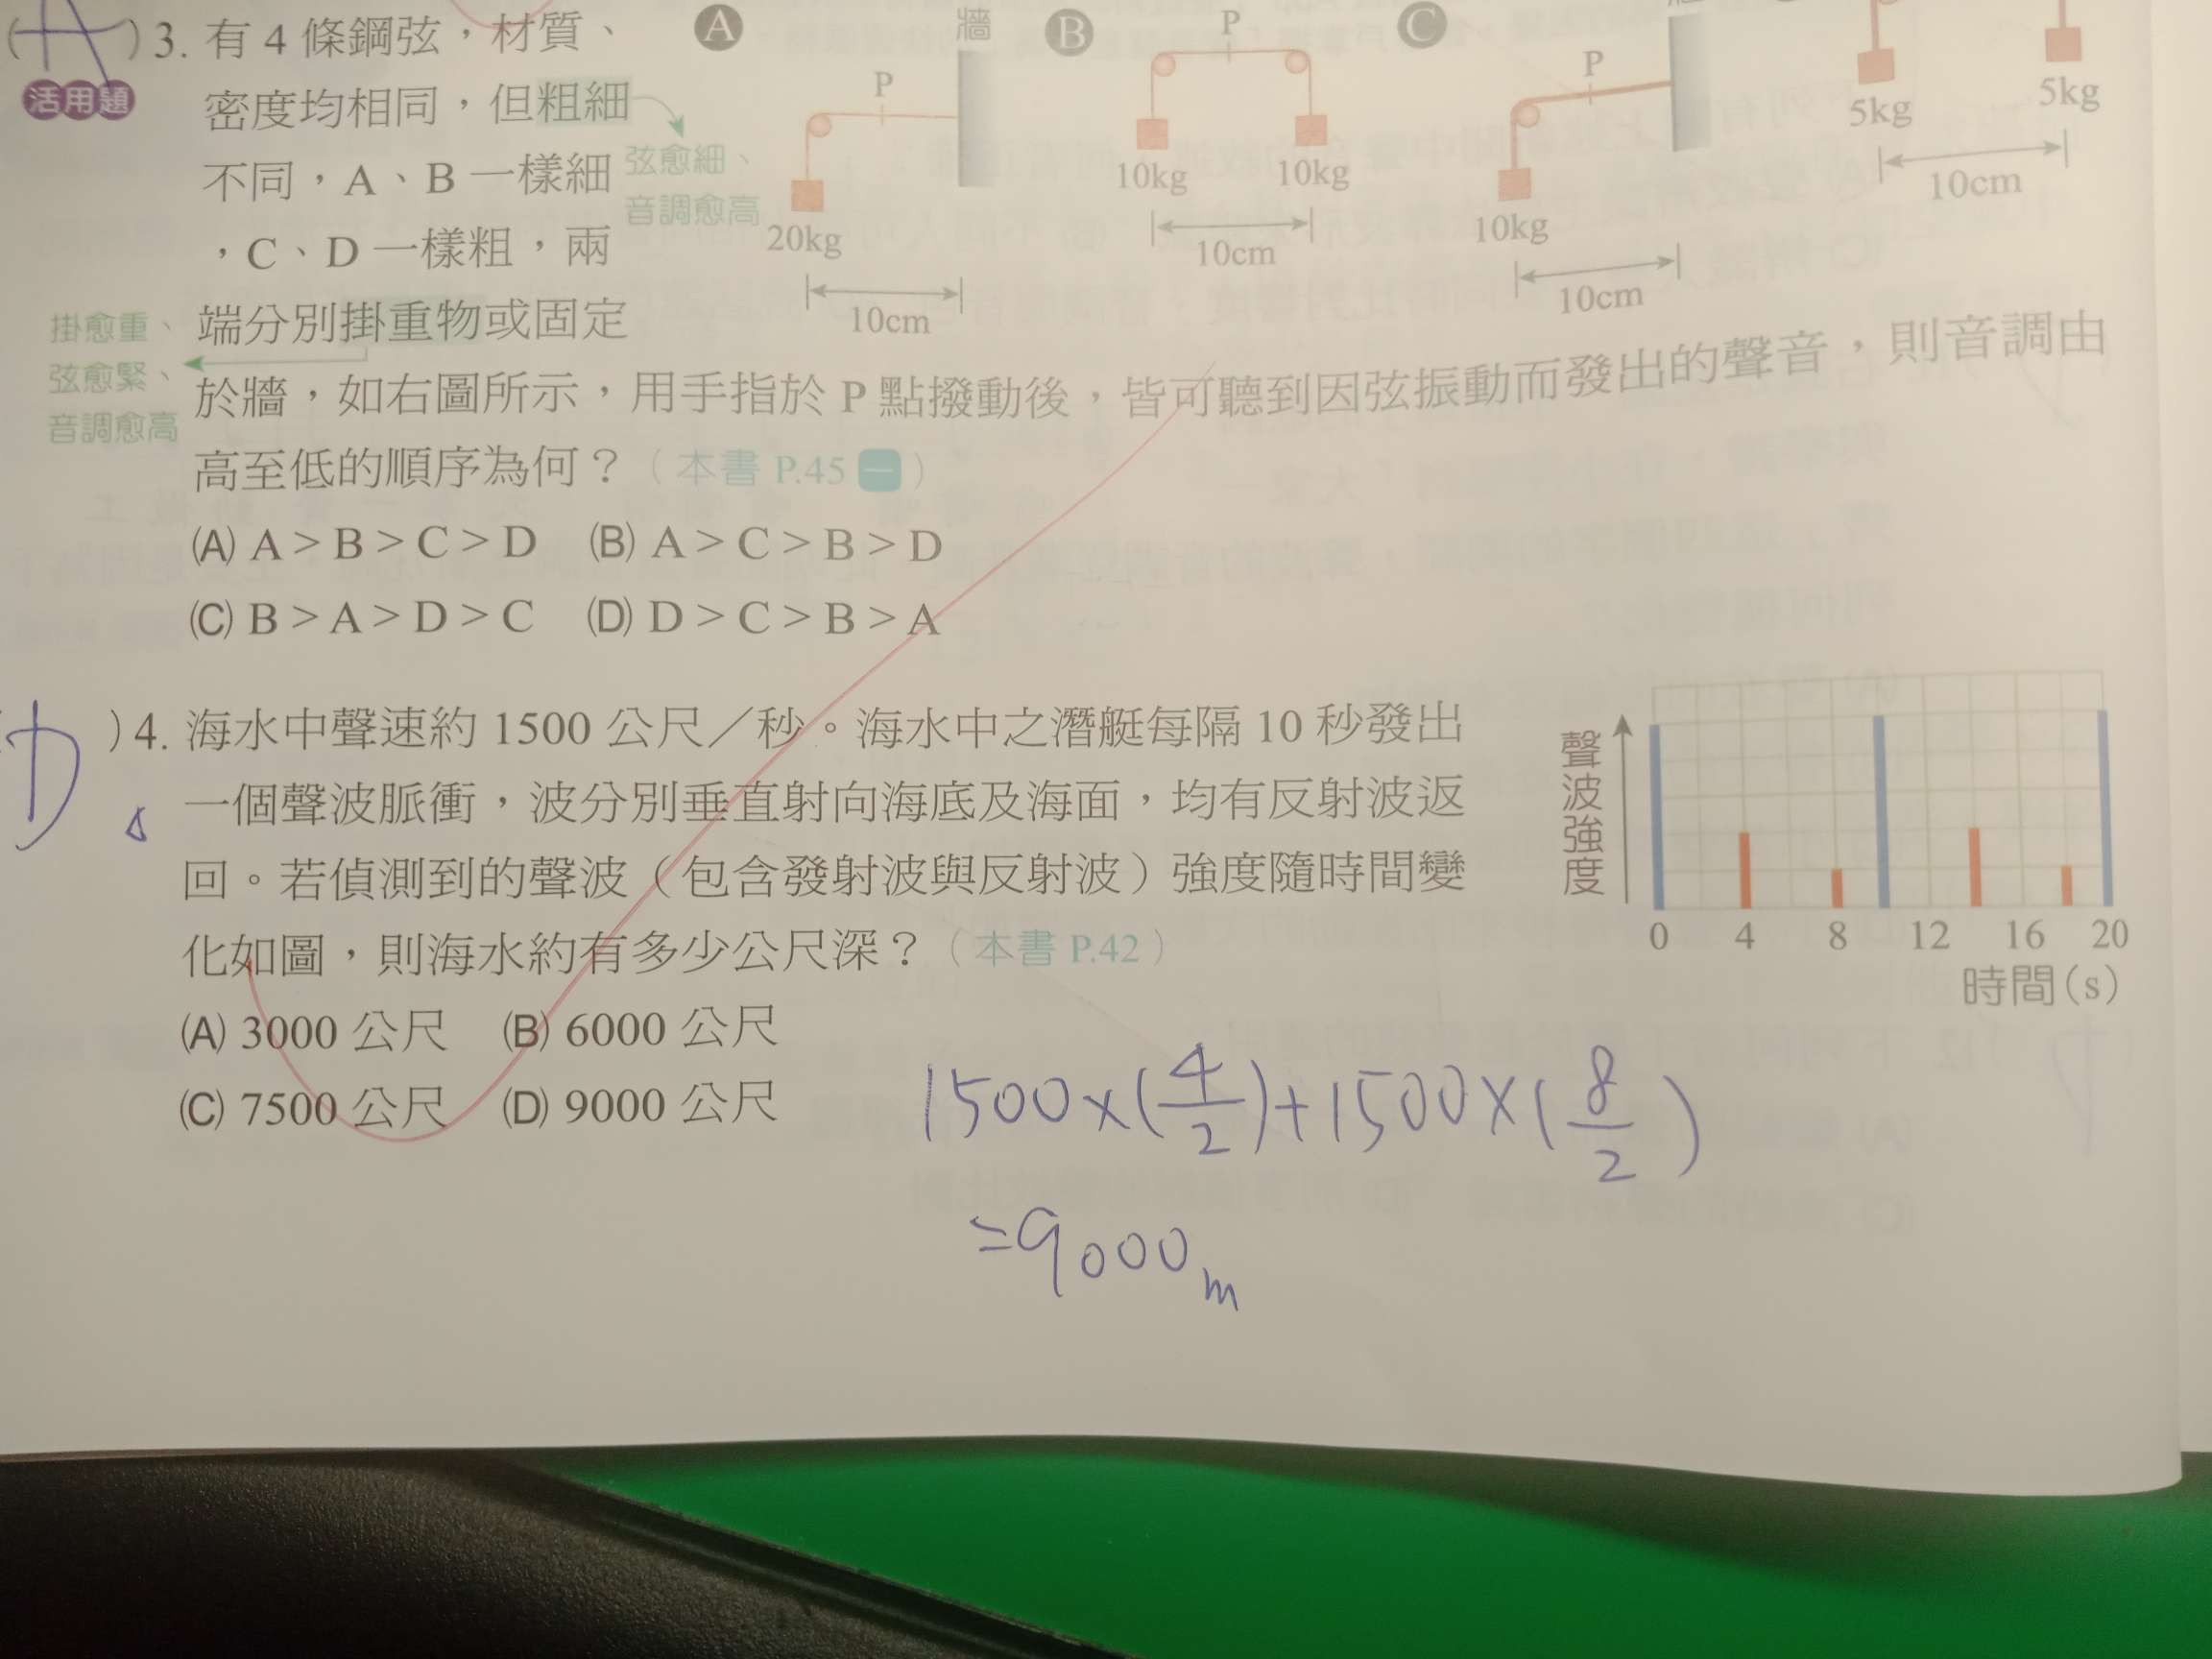 (A)3. 有 4 條鋼弦，材質、
活用題
密度均相同，但粗細
不同，A、B 一樣細
，C、D 一樣粗，兩
端分別掛重物或固定
於牆，如右圖所示，用手指於 P 點撥動後，皆可聽到因弦振動而發出的聲音，則音調由
高至低的順序為何？（本書 P.45 一）
(A) A > B > C > D (B) A > C > B > D
(C) B > A > D > C (D) D > C > B > A
弦愈細、
音調愈高
掛愈重、
弦愈緊、
音調愈高
A
牆
P
20kg
10cm
B
P
10kg
10kg
10cm
C
P
10kg
10cm
5kg
5kg
10cm
)4. 海水中聲速約 1500 公尺／秒。海水中之潛艇每隔 10 秒發出
一個聲波脈衝，波分別垂直射向海底及海面，均有反射波返
回。若偵測到的聲波（包含發射波與反射波）強度隨時間變
化如圖，則海水約有多少公尺深？（本書 P.42）
(A) 3000 公尺 (B) 6000 公尺
(C) 7500 公尺 (D) 9000 公尺
聲波強度
0 4 8 12 16 20
時間(s)
1500×(4/2)+1500×(8/2)
=9000m